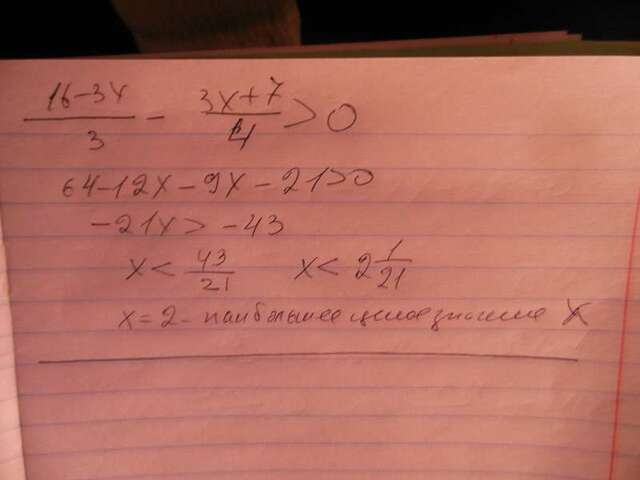 16-3x / 3 - 3x+7 / 4 > 0
64-12x-9x-21>0
-21x > -43
x < 43/21 x < 2 1/21
x=2 - наибольшее целое значение x